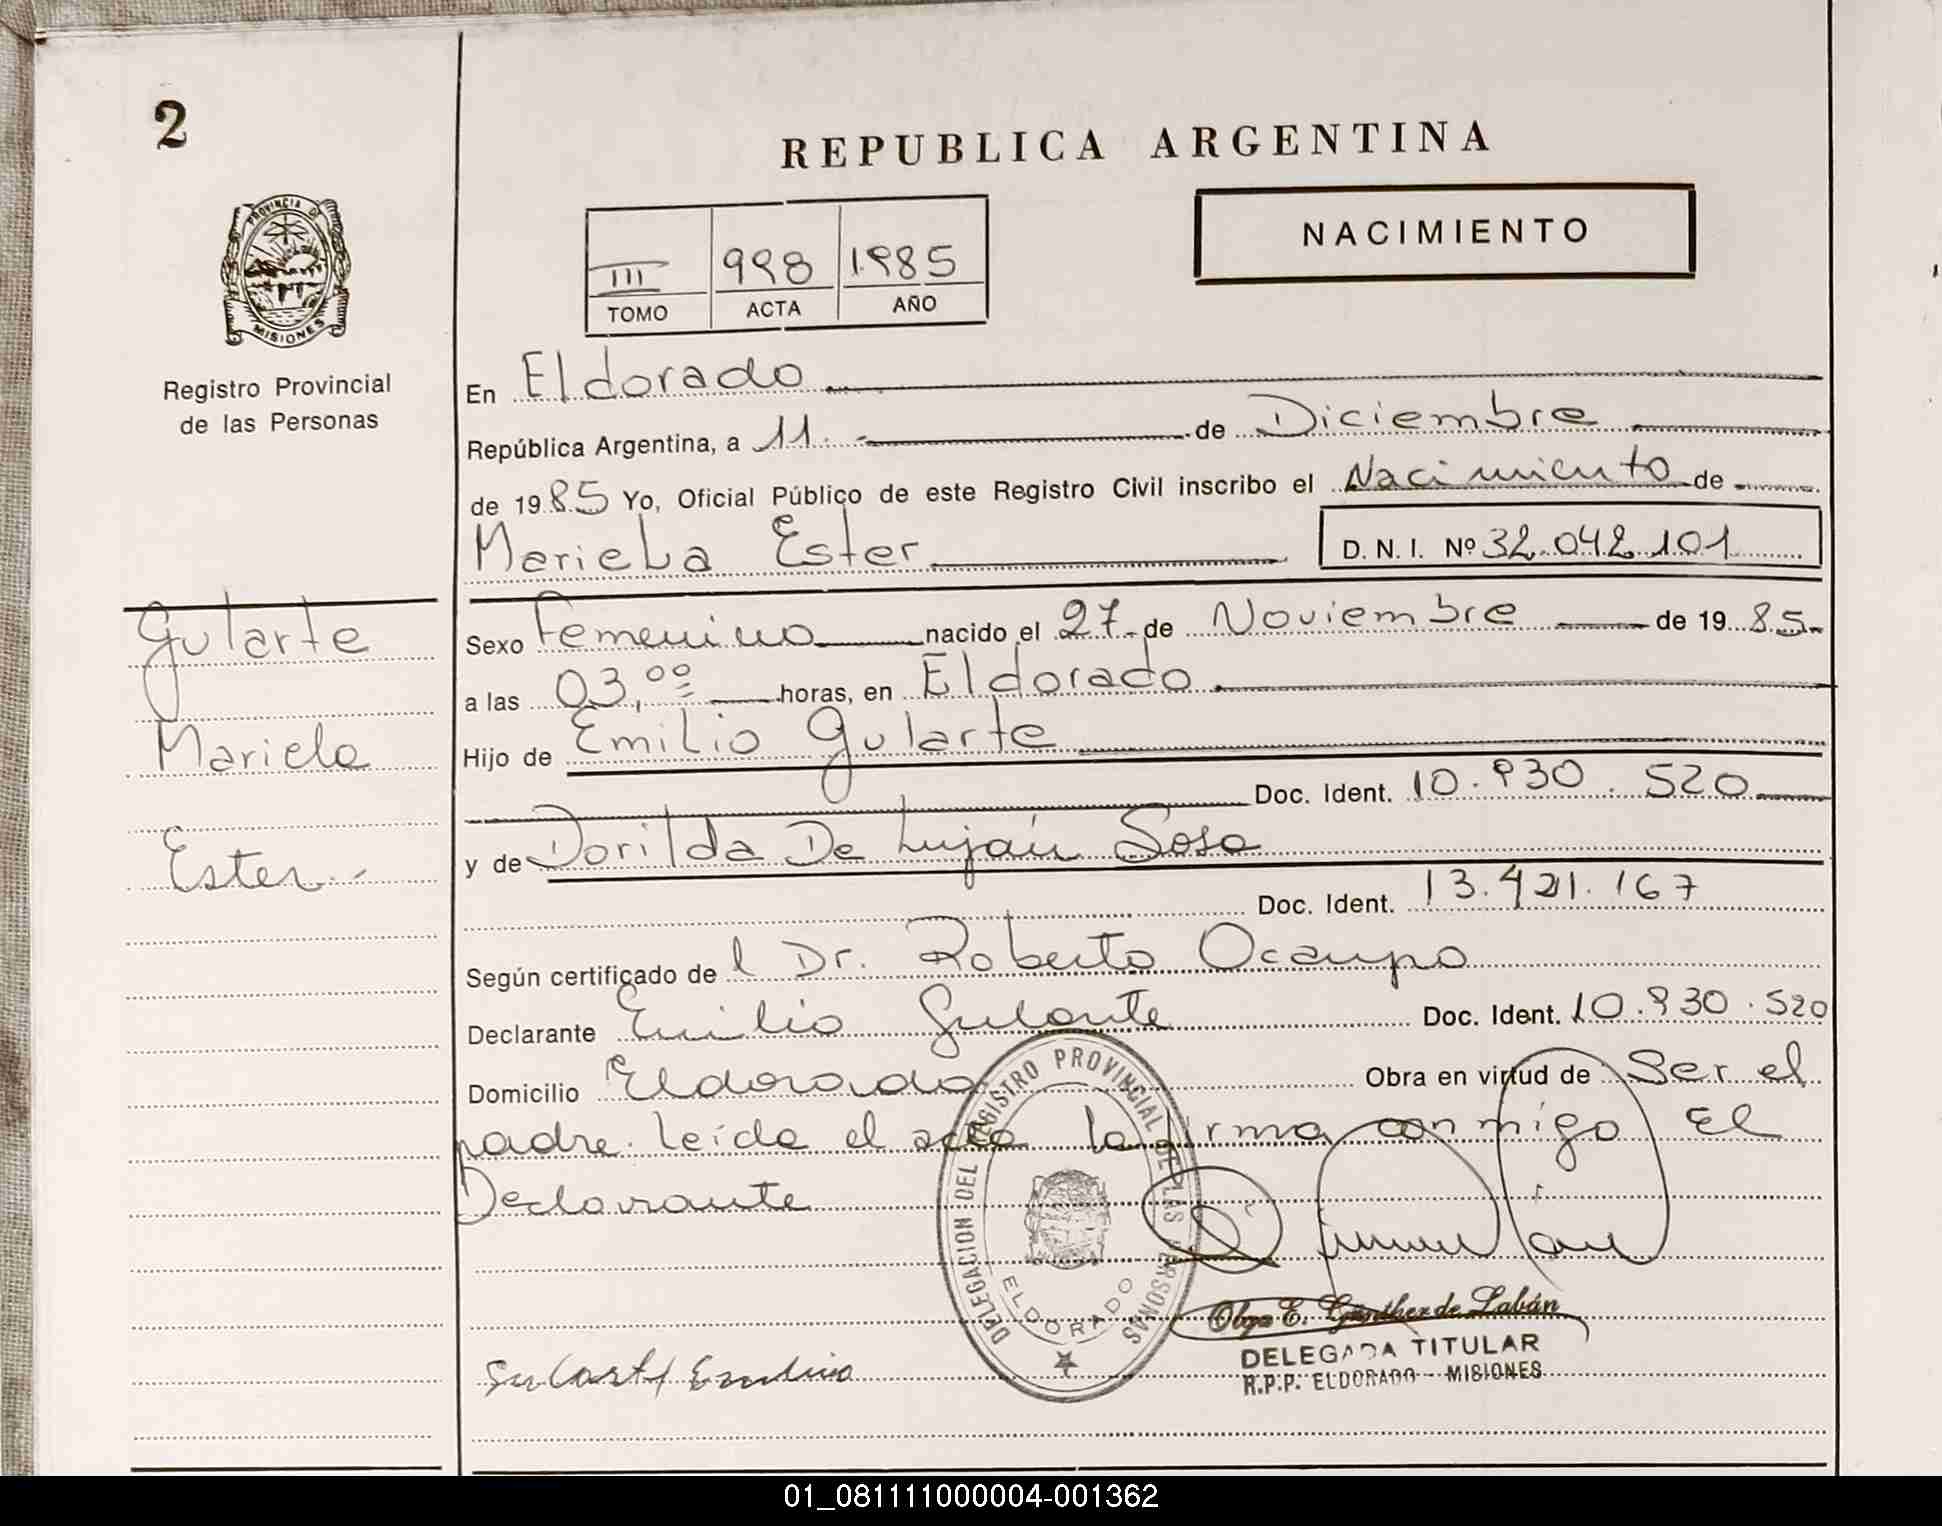 2
REPUBLICA ARGENTINA
PROVINCIA DE
MISIONES
Registro Provincial
de las Personas
III 998 1985
TOMO ACTA AÑO
NACIMIENTO
En Eldorado
República Argentina, a 11. de Diciembre
de 1985 Yo, Oficial Público de este Registro Civil inscribo el Nacimiento de
Mariela Ester D. N. I. Nº 32.042.101
Gularte
Mariela
Ester.-
Sexo Femenino nacido el 27 de Noviembre de 1985
a las 03,00 horas, en Eldorado
Hijo de Emilio Gularte
Doc. Ident. 10.930.520
y de Dorilda De Luján Sosa
Doc. Ident. 13.421.167
Según certificado del Dr. Roberto Ocampo
Declarante Emilio Gularte Doc. Ident. 10.930.520
Domicilio Eldorado Obra en virtud de Ser el
padre. Leída el acta la firma conmigo El
Declarante
DELEGACION DEL REGISTRO PROVINCIAL DE LAS PERSONAS
ELDORADO
Olga E. Günther de Labán
DELEGADA TITULAR
R.P.P. ELDORADO - MISIONES
01_081111000004-001362